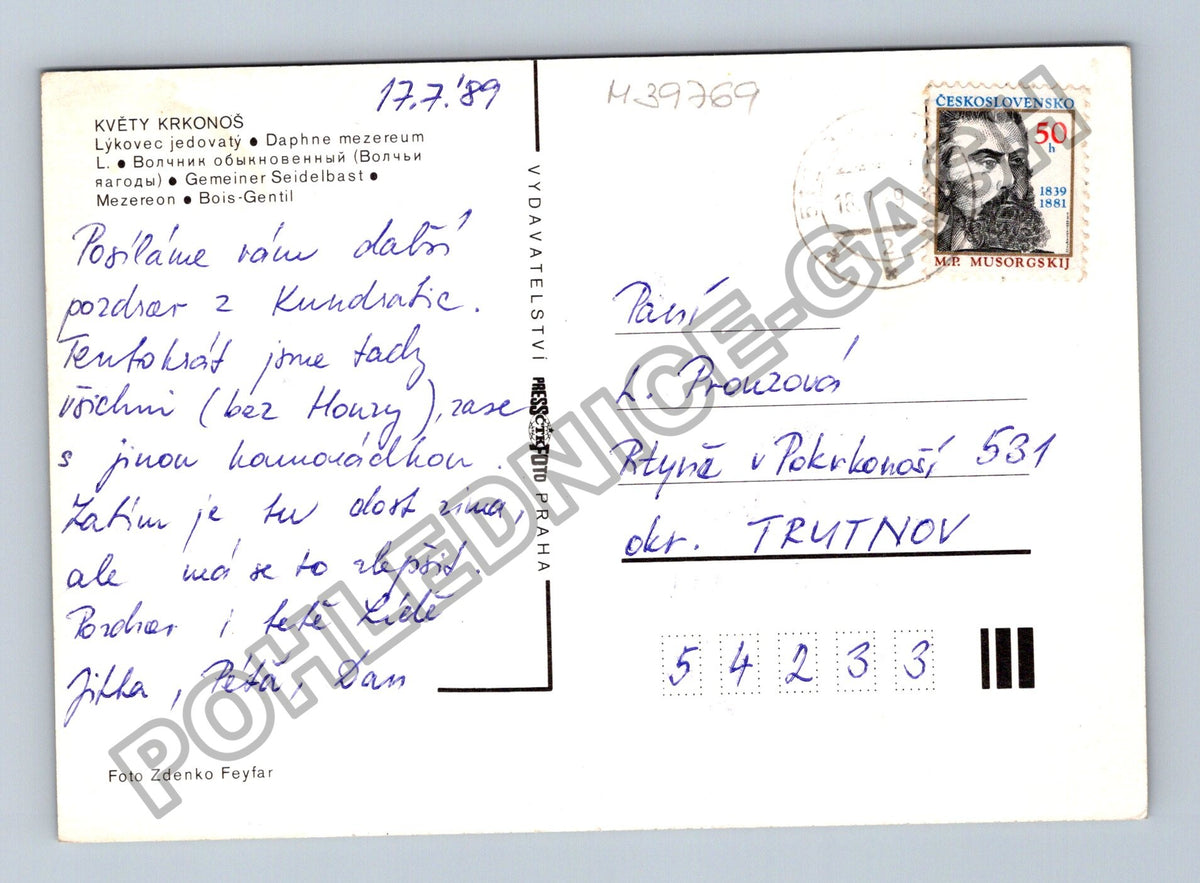 17.7.'89
KVĚTY KRKONOŠ
Lýkovec jedovatý ● Daphne mezereum
L. ● Волчник обыкновенный (Волчьи
яагоды) ● Gemeiner Seidelbast ●
Mezereon ● Bois-Gentil
Posíláme vám další
pozdrav z Kundratic.
Tentokrát jsme tady
všichni (bez Honzy), zase
s jinou kamarádkou.
Zatím je tu dost zima,
ale má se to zlepšit.
Pozdrav i tetě Lídě
Jitka, Péťa, Dan
Foto Zdenko Feyfar
VYDAVATELSTVÍ PRESSFOTO PRAHA
ČTK
M39769
ČESKOSLOVENSKO
50
h
1839
1881
M.P. MUSORGSKIJ
2
Paní
L. Prouzová
Rtyně v Pokrkonoší 531
okr. TRUTNOV
54233
POHLEDNICE-GASH